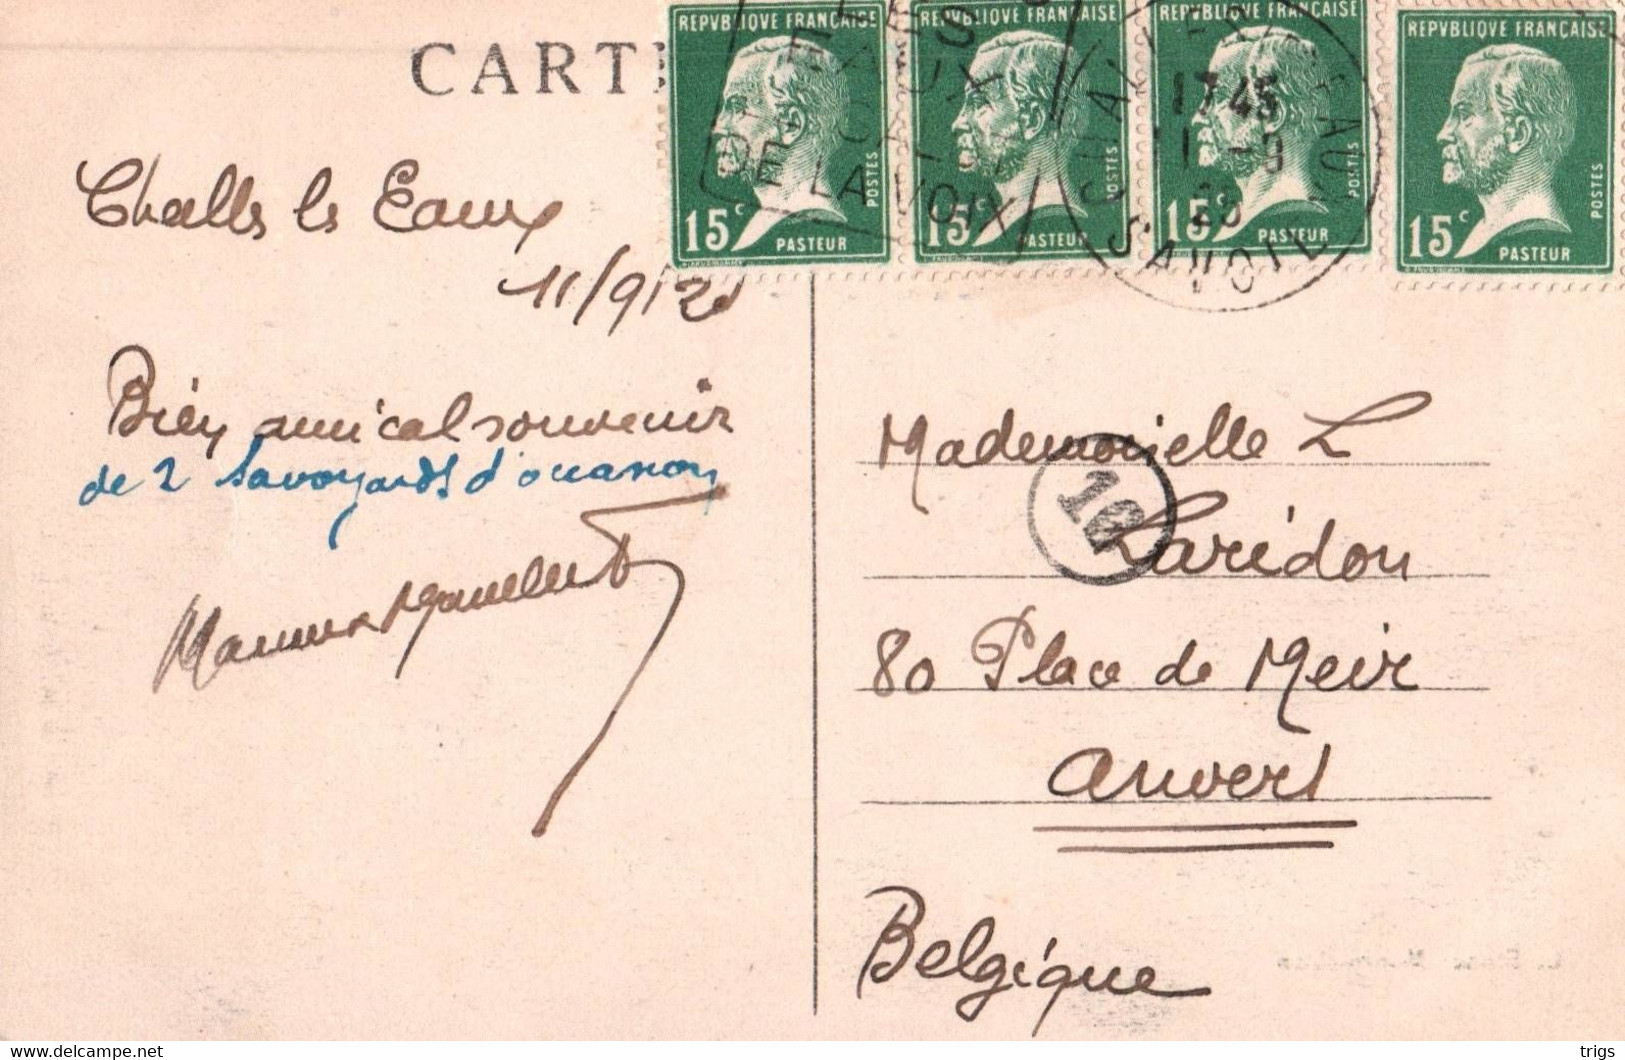 CARTE
REPVBLIQVE FRANÇAISE
15c
PASTEUR
POSTES
REPVBLIQVE FRANÇAISE
15c
PASTEUR
POSTES
REPVBLIQVE FRANÇAISE
15c
PASTEUR
POSTES
REPVBLIQVE FRANÇAISE
15c
PASTEUR
POSTES
LA VOIX
17 45
11 - 9
SAVOIE
Challes les Eaux
11/9/2
Bien amical souvenir
de 2 Savoyards d'occasion
Mademoiselle L
Laridon
80 Place de Meir
Anvers
Belgique
delcampe.net
trigs